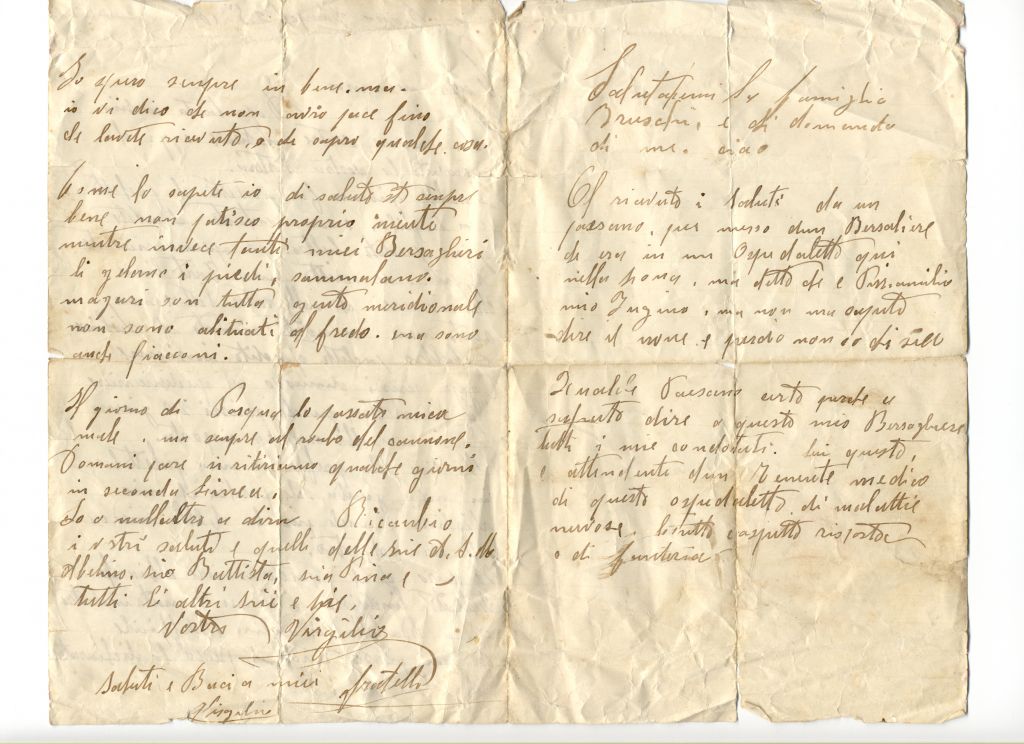 Io spero sempre in bene. ma
io vi dico che non avrò pace fino
che lavete ricevuto, o che sapro qualche cosa.
Come lo sapete io di salute stò sempre
bene non patisco proprio niente
mentre invece tanti miei Bersaglieri
li gelano i piedi, sammalano.
magari son tutta gente meridionale
non sono abituati al fredo. ma sono
anche fiacconi.
Il giorno di Pasqua lo passato mica
male, ma sempre al rombo del cannone.
Domani pare si ritiriamo qualche giorno
in seconda linea.
Io o nullaltro a dirvi Ricambio
i vostri saluti e quelli delle zie
Abelino, zio Battista, zia Pina e
tutti li altri zii e zie.
Vostro Virgilio
Saluti e Baci a miei fratelli
Virgilio
Salutatemi la famiglia
e di domanda
di me. ciao
O ricevuto i saluti da un
paesano, per messo dun Bersaliere
che era in un Ospedaletto qui
nella zona, ma detto che e
mio Zugino, ma non ma saputo
dire il nome e perciò non so di
Qualche Paesano certo perche a
saputo dire a questo mio Bersagliere
tutti i mie condotuti. lui questo,
e attendente dun Tenente medico
di questo ospedaletto di malattie
nervose. aspetto risposta
o di fanteria